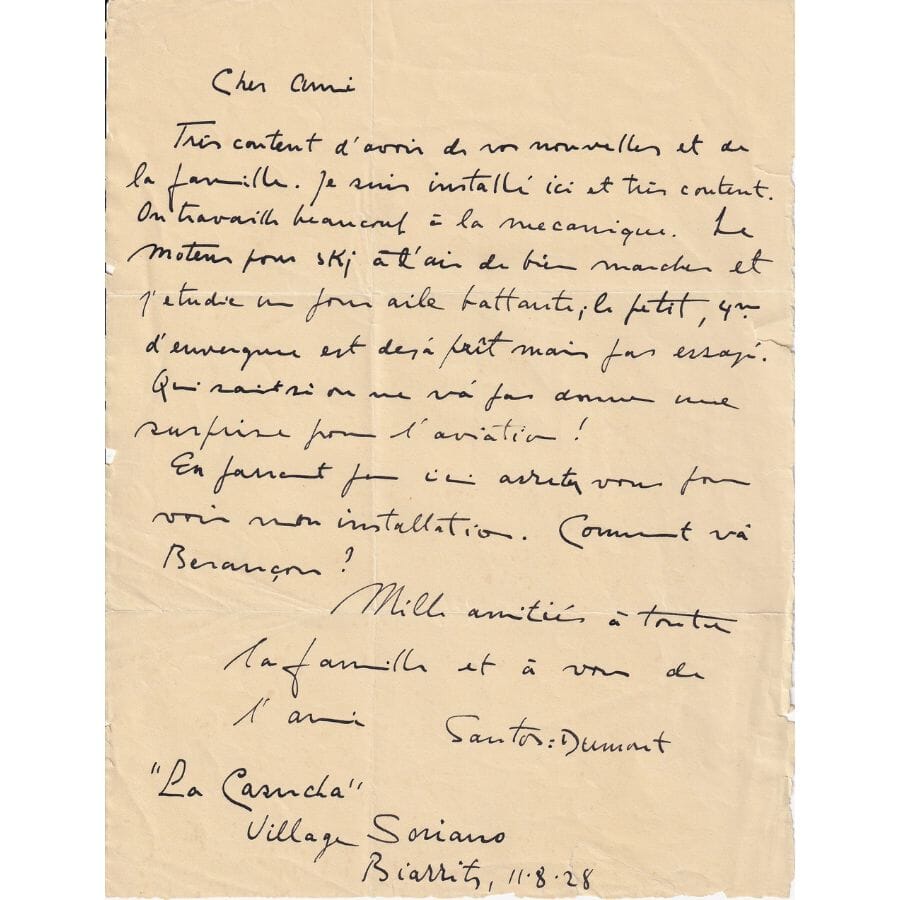 Cher ami
Très content d'avoir de vos nouvelles et de
la famille. Je suis installé ici et très content.
On travaille beaucoup à la mecanique. Le
moteur pour skj à l'air de bien marcher et
j'etudie un pour aile battante; le petit, 4m
d'envergure est dejà prêt mais pas essayé.
Qui sait si on ne và pas donner une
surprise pour l'aviàtion!
En passant par ici arretez vous pour
voir mon installation. Comment và
Besançon?
Mille amitiés à toute
la famille et à vous de
l'ami Santos=Dumont
"La Casucha"
Village Soriano
Biarrits, 11.8.28